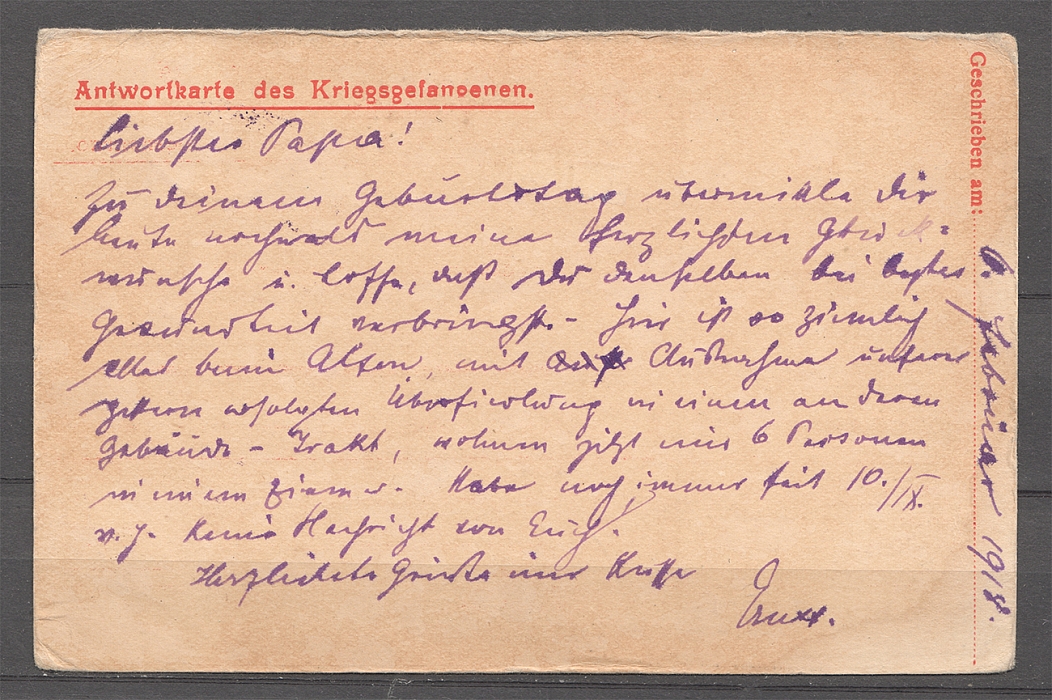 Antwortkarte des Kriegsgefangenen.
Liebster Papa!
Zu deinem Geburtstag übermittle dir
heute nochmals meine herzlichsten Glück-
wünsche u. hoffe, daß Du denselben bei bester
Gesundheit verbringst. - Hier ist so ziemlich
alles beim Alten, mit Ausnahme unserer
gestern erfolgten Übersiedlung in einen anderen
Gebäude-Trakt, wohnen jetzt nur 6 Personen
in einem Zimmer. Habe noch immer seit 10./IX.
v. J. keine Nachricht von Euch.
Herzlichste Grüße und Küsse
Geschrieben am:
Februar 1918.